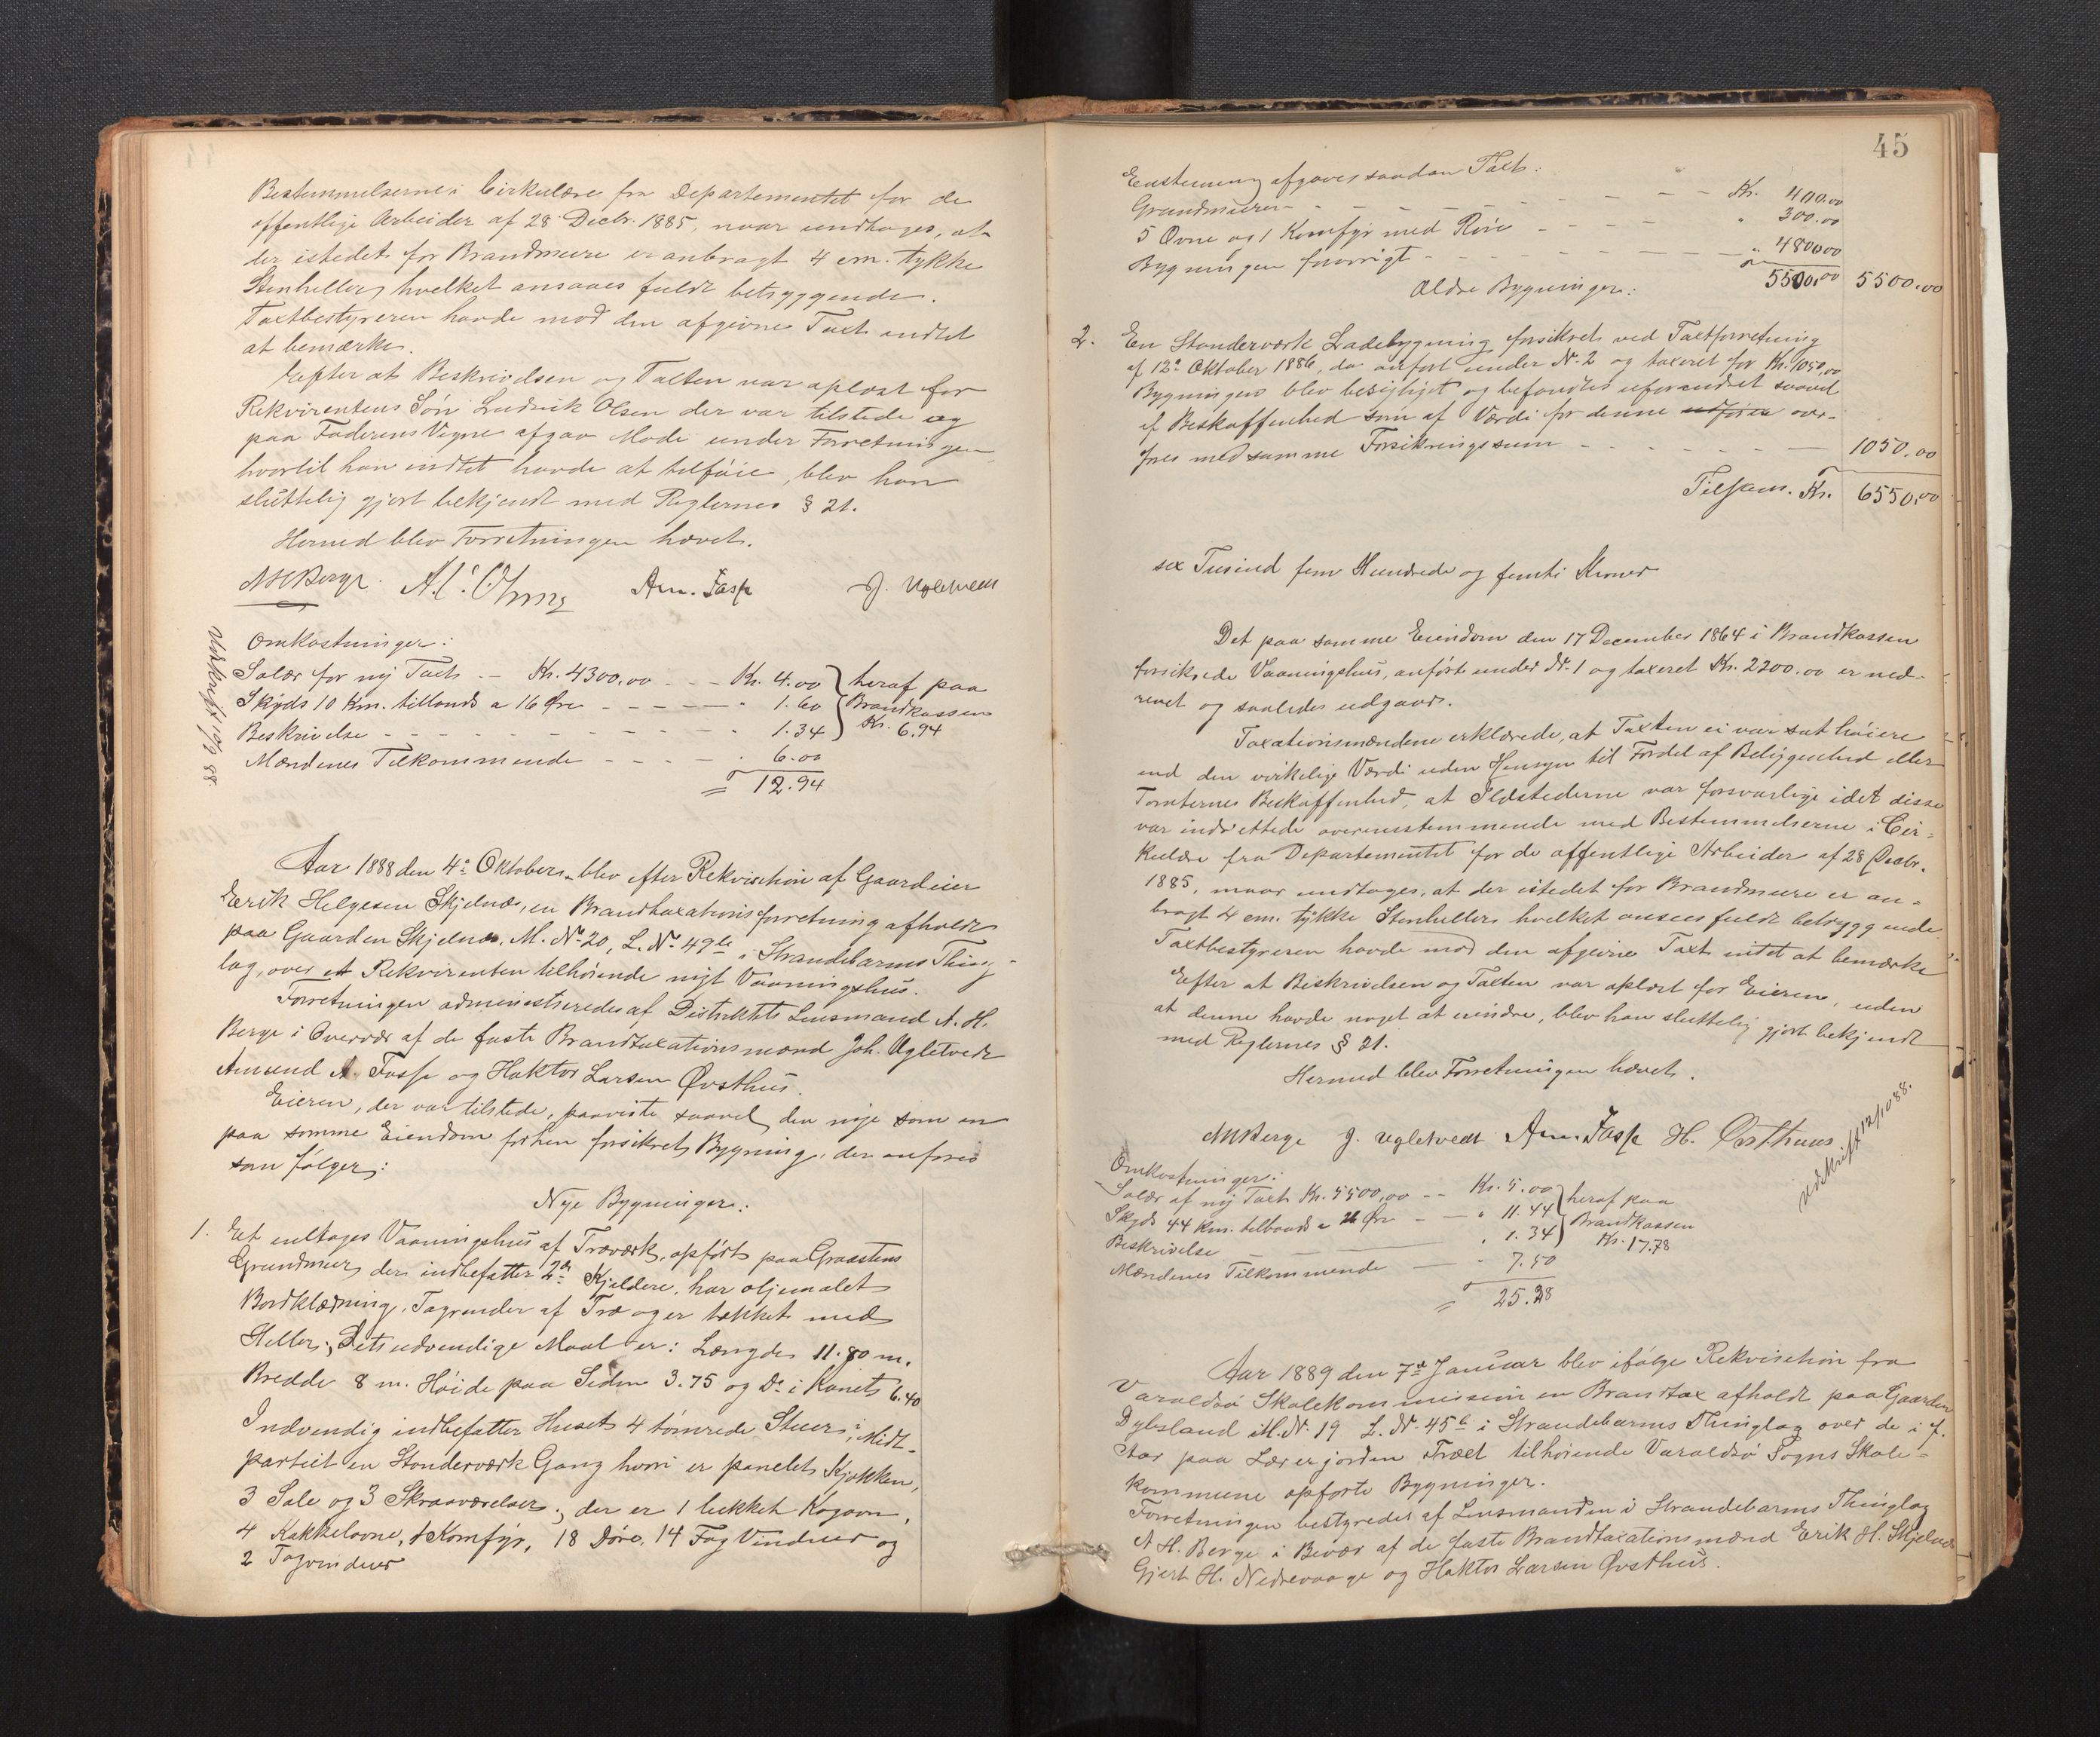 Bestemmelserne i Cirkulære fra Departementet for de
offentlige Arbeider af 28 Decbr. 1885, naar undtages, at
der istedet for Brandmure er anbragt 4 cm. tykke
Stenheller, hvilket ansaaes fuldt betryggende.
Taxtbestyreren havde mod den afgivne Taxt indtet
at bemærke.
Efter at Beskrivelsen og Taxten var oplæst for
Rekvirentens Søn Ludvik Olsen der var tilstede og
paa Faderens Vegne afgav Møde under Forretningen,
hvortil han indtet havde at tilføie, blev han
sluttelig gjort bekjendt med Reglernes § 21.
Hermed blev Forretningen hævet.
AHBerge. Am. Fasse J. Ugletvedt
Omkostninger:
Salær for ny Taxt – Kr. 4300,00 - - - Kr. 4.00 } heraf paa
Skyds 10 Km. tillands a 16 Øre - - - - - " 1.60 } Brandkassen
Beskrivelse - - - - - - - - - - " 1.34 } Kr. 6.94
Mændenes Tilkommende - - - - " 6.00
= 12.94
Udskrift 10/9 88.
Aar 1888 den 4de Oktober blev efter Rekvisition af Gaardeier
Erik Helgesen Skjelnæs, en Brandtaxationsforretning afholdt
paa Gaarden Skjelnæs, M. No 20, L. No 49 b i Strandebarms Thing-
lag, over et Rekvirenten tilhørende nyt Vaaningshus.
Forretningen administreredes af Distriktets Lensmand A. H.
Berge i Overvær af de faste Brandtaxationsmænd Joh. Ugletvedt
Amund A. Fasse og Haktor Larsen Øvsthus.
Eieren, der var tilstede, paaviste saavel den nye som en
paa samme Eiendom forhen forsikret Bygning, der anføres
som følger:
Nye Bygninger:
1. Et entages Vaaningshus af Træværk, opført paa Graastens
Grundmur, der indbefatter 2de Kjeldere, har oljemalet
Bordklædning, Tagrender af Træ og er tækket med
Heller; Dets udvendige Maal er: Længde 11.80 m.
Bredde 8 m. Høide paa Siden 3.75 og Do i Rønet 6.40
Indvendig indbefatter Huset 4 tømrede Stuer, i Midt-
partiet en Stonderværk Gang hvori er panelet Kjøkken,
3 Sale og 3 Skraaværelser; der er 1 lukket Kogovn,
4 Kakkelovne, 1 Komfyr, 18 Døre, 14 Fag Vinduer og
2 Tagvinduer
45
Enstemmig afgaves saadan Taxt:
Grundmuren - - - - - - - - - Kr. 400.00
5 Ovne og 1 Komfyr med Rør - - - - " 300.00
Bygningen forøvrigt - - - - - - - " 4800.00
5500.00 5500.00
Ældre Bygninger:
2. En Stonderværk Ladebygning forsikret ved Taxtforretning
af 12te Oktober 1886, da anført under No 2 og taxeret for Kr. 1050,00
Bygningen blev besigtiget og befandtes uforandret saavel
af Beskaffenhed som af Værdi for denne udføres over-
føres med samme Forsikringssum - - - - - 1050.00
Tilsam. Kr. 6550.00
sex Tusind fem Hundrede og femti Kroner
Det paa samme Eiendom den 17 December 1864 i Brandkassen
forsikrede Vaaningshus, anført under No 1 og taxeret Kr. 2200.00 er ned-
revet og saaledes udgaaet.
Taxationsmændene erklærede, at Taxten ei var sat høiere
end den virkelige Værdi uden Hensyn til Fordel af Beliggenhed eller
Tomternes Beskaffenhed, at Ildstederne var forsvarlige idet disse
var indrettede overensstemmende med Bestemmelserne i Cir-
kulære fra Departementet for de offentlige Arbeider af 28 Decbr.
1885, naar undtages, at der istedet for Brandmure er an-
bragt 4 cm. tykke Stenheller hvilket ansees fuldt betryggende.
Taxtbestyreren havde mod den afgivne Taxt intet at bemærke
Efter at Beskrivelsen og Taxten var oplæst for Eieren, uden
at denne havde noget at erindre, blev han sluttelig gjort bekjendt
med Reglernes § 21.
Hermed blev Forretningen hævet.
AHBerge J. Ugletvedt Am. Fasse H. Øvsthuus
Udskrift 12/10 88.
Omkostninger:
Salær af ny Taxt Kr. 5500,00 - - Kr. 5.00 } heraf paa
Skyds 44 km. tilvands a 26 Øre - - " 11.44 } Brandkassen
Beskrivelse - " 1.34 } Kr. 17.78
Mændenes Tilkommende - " 7.50
= 25.28
Aar 1889 den 7de Januar blev ifølge Rekvisition fra
Varaldsø Skolekommission en Brandtax afholdt paa Gaarden
Dybsland M. No 19 L. No 45 b i Strandebarms Thinglag over de i f.
Aar paa Lærerjorden Træet tilhørende Varaldsø Sogns Skole-
kommune opførte Bygninger.
Forretningen bestyredes af Lensmanden i Strandebarms Thinglag
A H. Berge i Bivær af de faste Brandtaxationsmænd Erik H. Skjelnæs
Gjert H. Nedrevaage og Haktor Larsen Øvsthus.